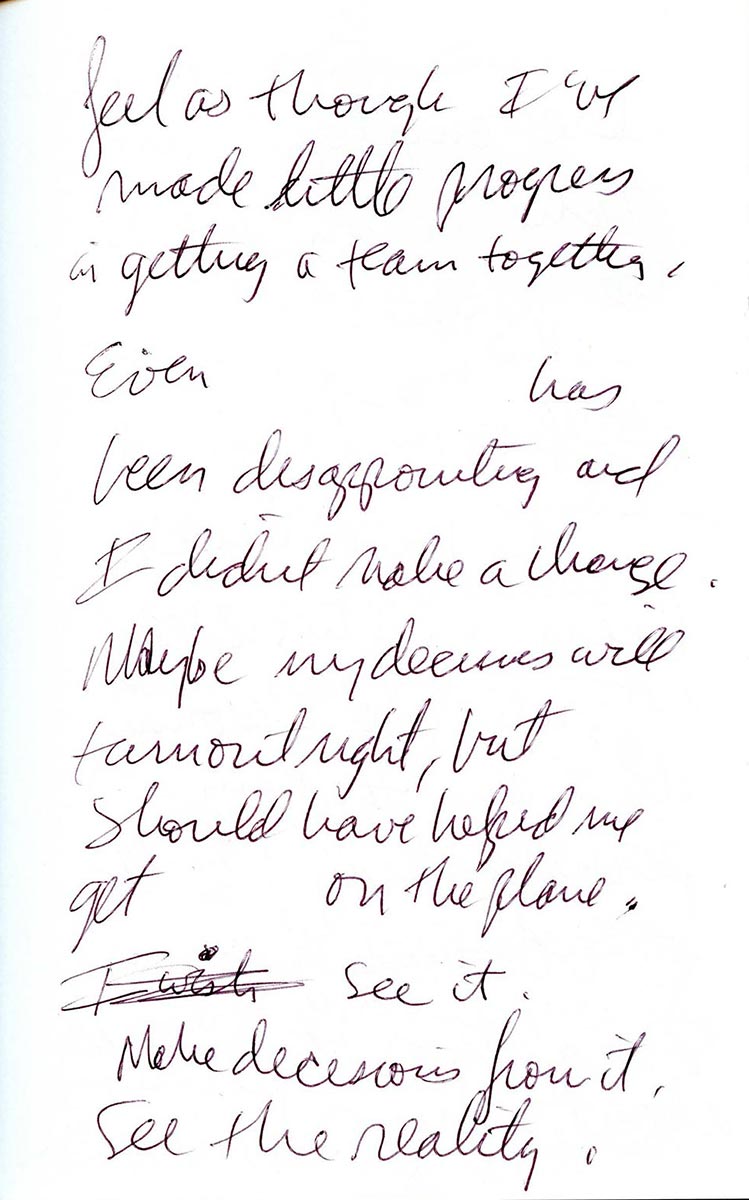 feel as though I've
made little progress
in getting a team together.
Even has
been disappointing and
I didn't make a change.
Maybe my decisions will
turn out right, but
should have helped me
get on the plane.
I wish See it.
Make decesions from it.
See the reality.